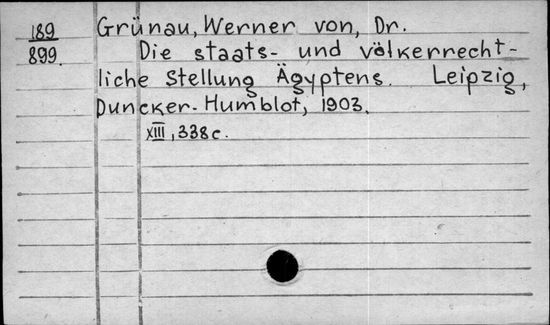 189 Grünau, Werner von, Dr.
899. Die staats- und völkerrecht-
liche Stellung Ägyptens. Leipzig,
Duncker-Humblot, 1903.
XIII, 338 c.